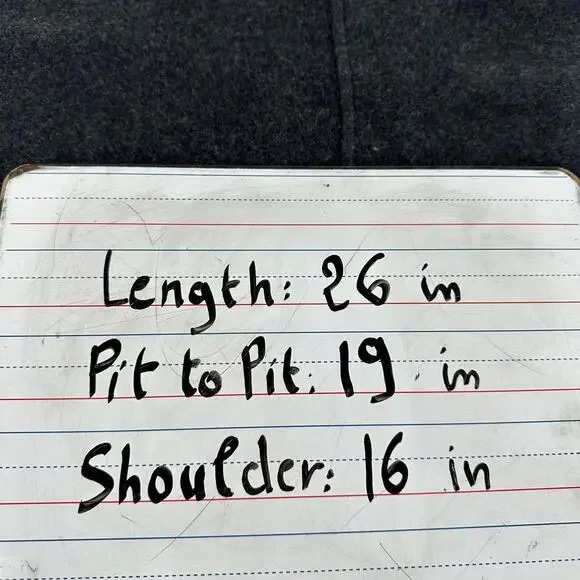 Length: 26 in
Pit to Pit: 19 in
Shoulder: 16 in